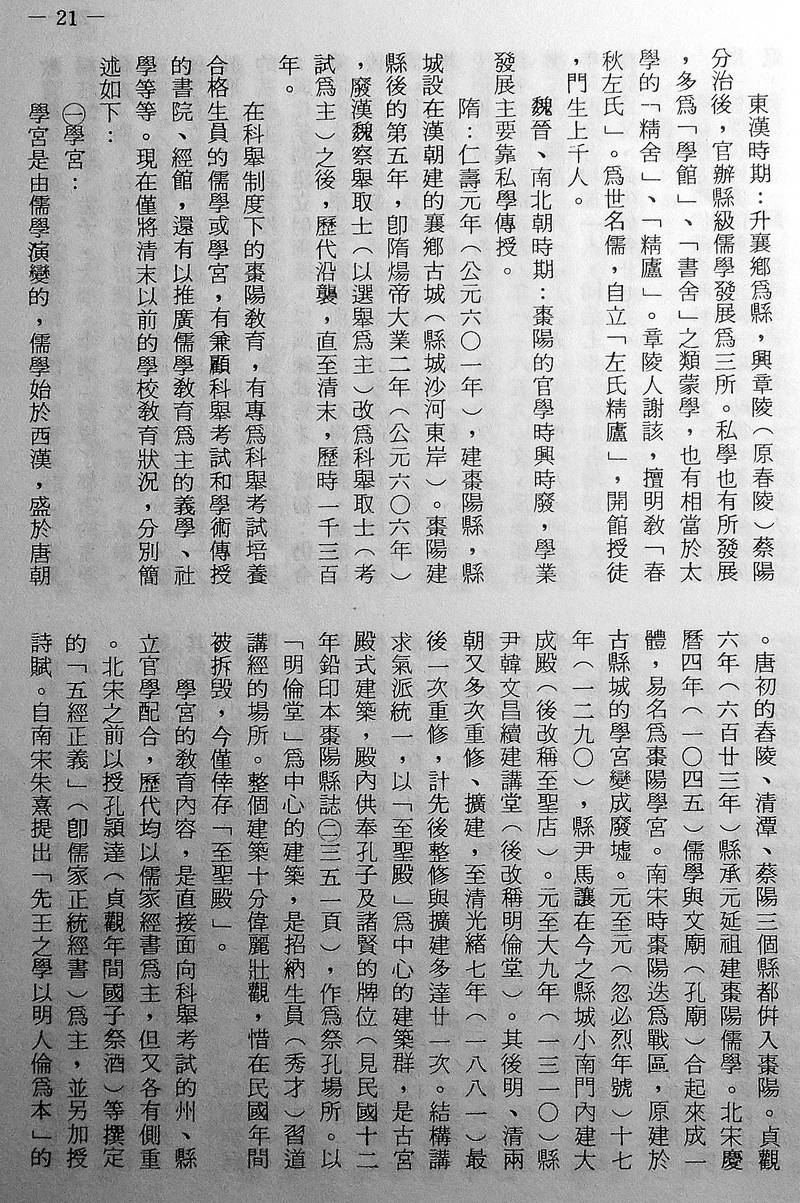 — 21 —
東漢時期：升襄鄉爲縣，興章陵（原舂陵）蔡陽
分治後，官辦縣級儒學發展爲三所。私學也有所發展
，多爲「學館」、「書舍」之類蒙學，也有相當於太
學的「精舍」、「精廬」。章陵人謝該，擅明教「春
秋左氏」。爲世名儒，自立「左氏精廬」，開館授徒
，門生上千人。
魏晉、南北朝時期：棗陽的官學時興時廢，學業
發展主要靠私學傳授。
隋：仁壽元年（公元六〇一年），建棗陽縣，縣
城設在漢朝建的襄鄉古城（縣城沙河東岸）。棗陽建
縣後的第五年，卽隋煬帝大業二年（公元六〇六年）
，廢漢魏察舉取士（以選舉爲主）改爲科舉取士（考
試爲主）之後，歷代沿襲，直至清末，歷時一千三百
年。
在科舉制度下的棗陽敎育，有專爲科舉考試培養
合格生員的儒學或學宮，有兼顧科舉考試和學術傳授
的書院、經館，還有以推廣儒學敎育爲主的義學、社
學等等。現在僅將清末以前的學校敎育狀況，分別簡
述如下：
㊀學宮：
學宮是由儒學演變的，儒學始於西漢，盛於唐朝
。唐初的舂陵、清潭、蔡陽三個縣都倂入棗陽。貞觀
六年（六百廿三年）縣承元延祖建棗陽儒學。北宋慶
曆四年（一〇四五）儒學與文廟（孔廟）合起來成一
體，易名爲棗陽學宮。南宋時棗陽迭爲戰區，原建於
古縣城的學宮變成廢墟。元至元（忽必烈年號）十七
年（一二九〇），縣尹馬讓在今之縣城小南門內建大
成殿（後改稱至聖店）。元至大九年（一三一〇）縣
尹韓文昌續建講堂（後改稱明倫堂）。其後明、清兩
朝又多次重修、擴建，至清光緒七年（一八八一）最
後一次重修，計先後整修與擴建多達廿一次。結構講
求氣派統一，以「至聖殿」爲中心的建築群，是古宮
殿式建築，殿內供奉孔子及諸賢的牌位（見民國十二
年鉛印本棗陽縣誌㊁三五一頁），作爲祭孔場所。以
「明倫堂」爲中心的建築，是招納生員（秀才）習道
講經的場所。整個建築十分偉麗壯觀，惜在民國年間
被拆毀，今僅倖存「至聖殿」。
學宮的敎育內容，是直接面向科舉考試的州、縣
立官學配合，歷代均以儒家經書爲主，但又各有側重
。北宋之前以授孔頴達（貞觀年間國子祭酒）等撰定
的「五經正義」（卽儒家正統經書）爲主，並另加授
詩賦。自南宋朱熹提出「先王之學以明人倫爲本」的